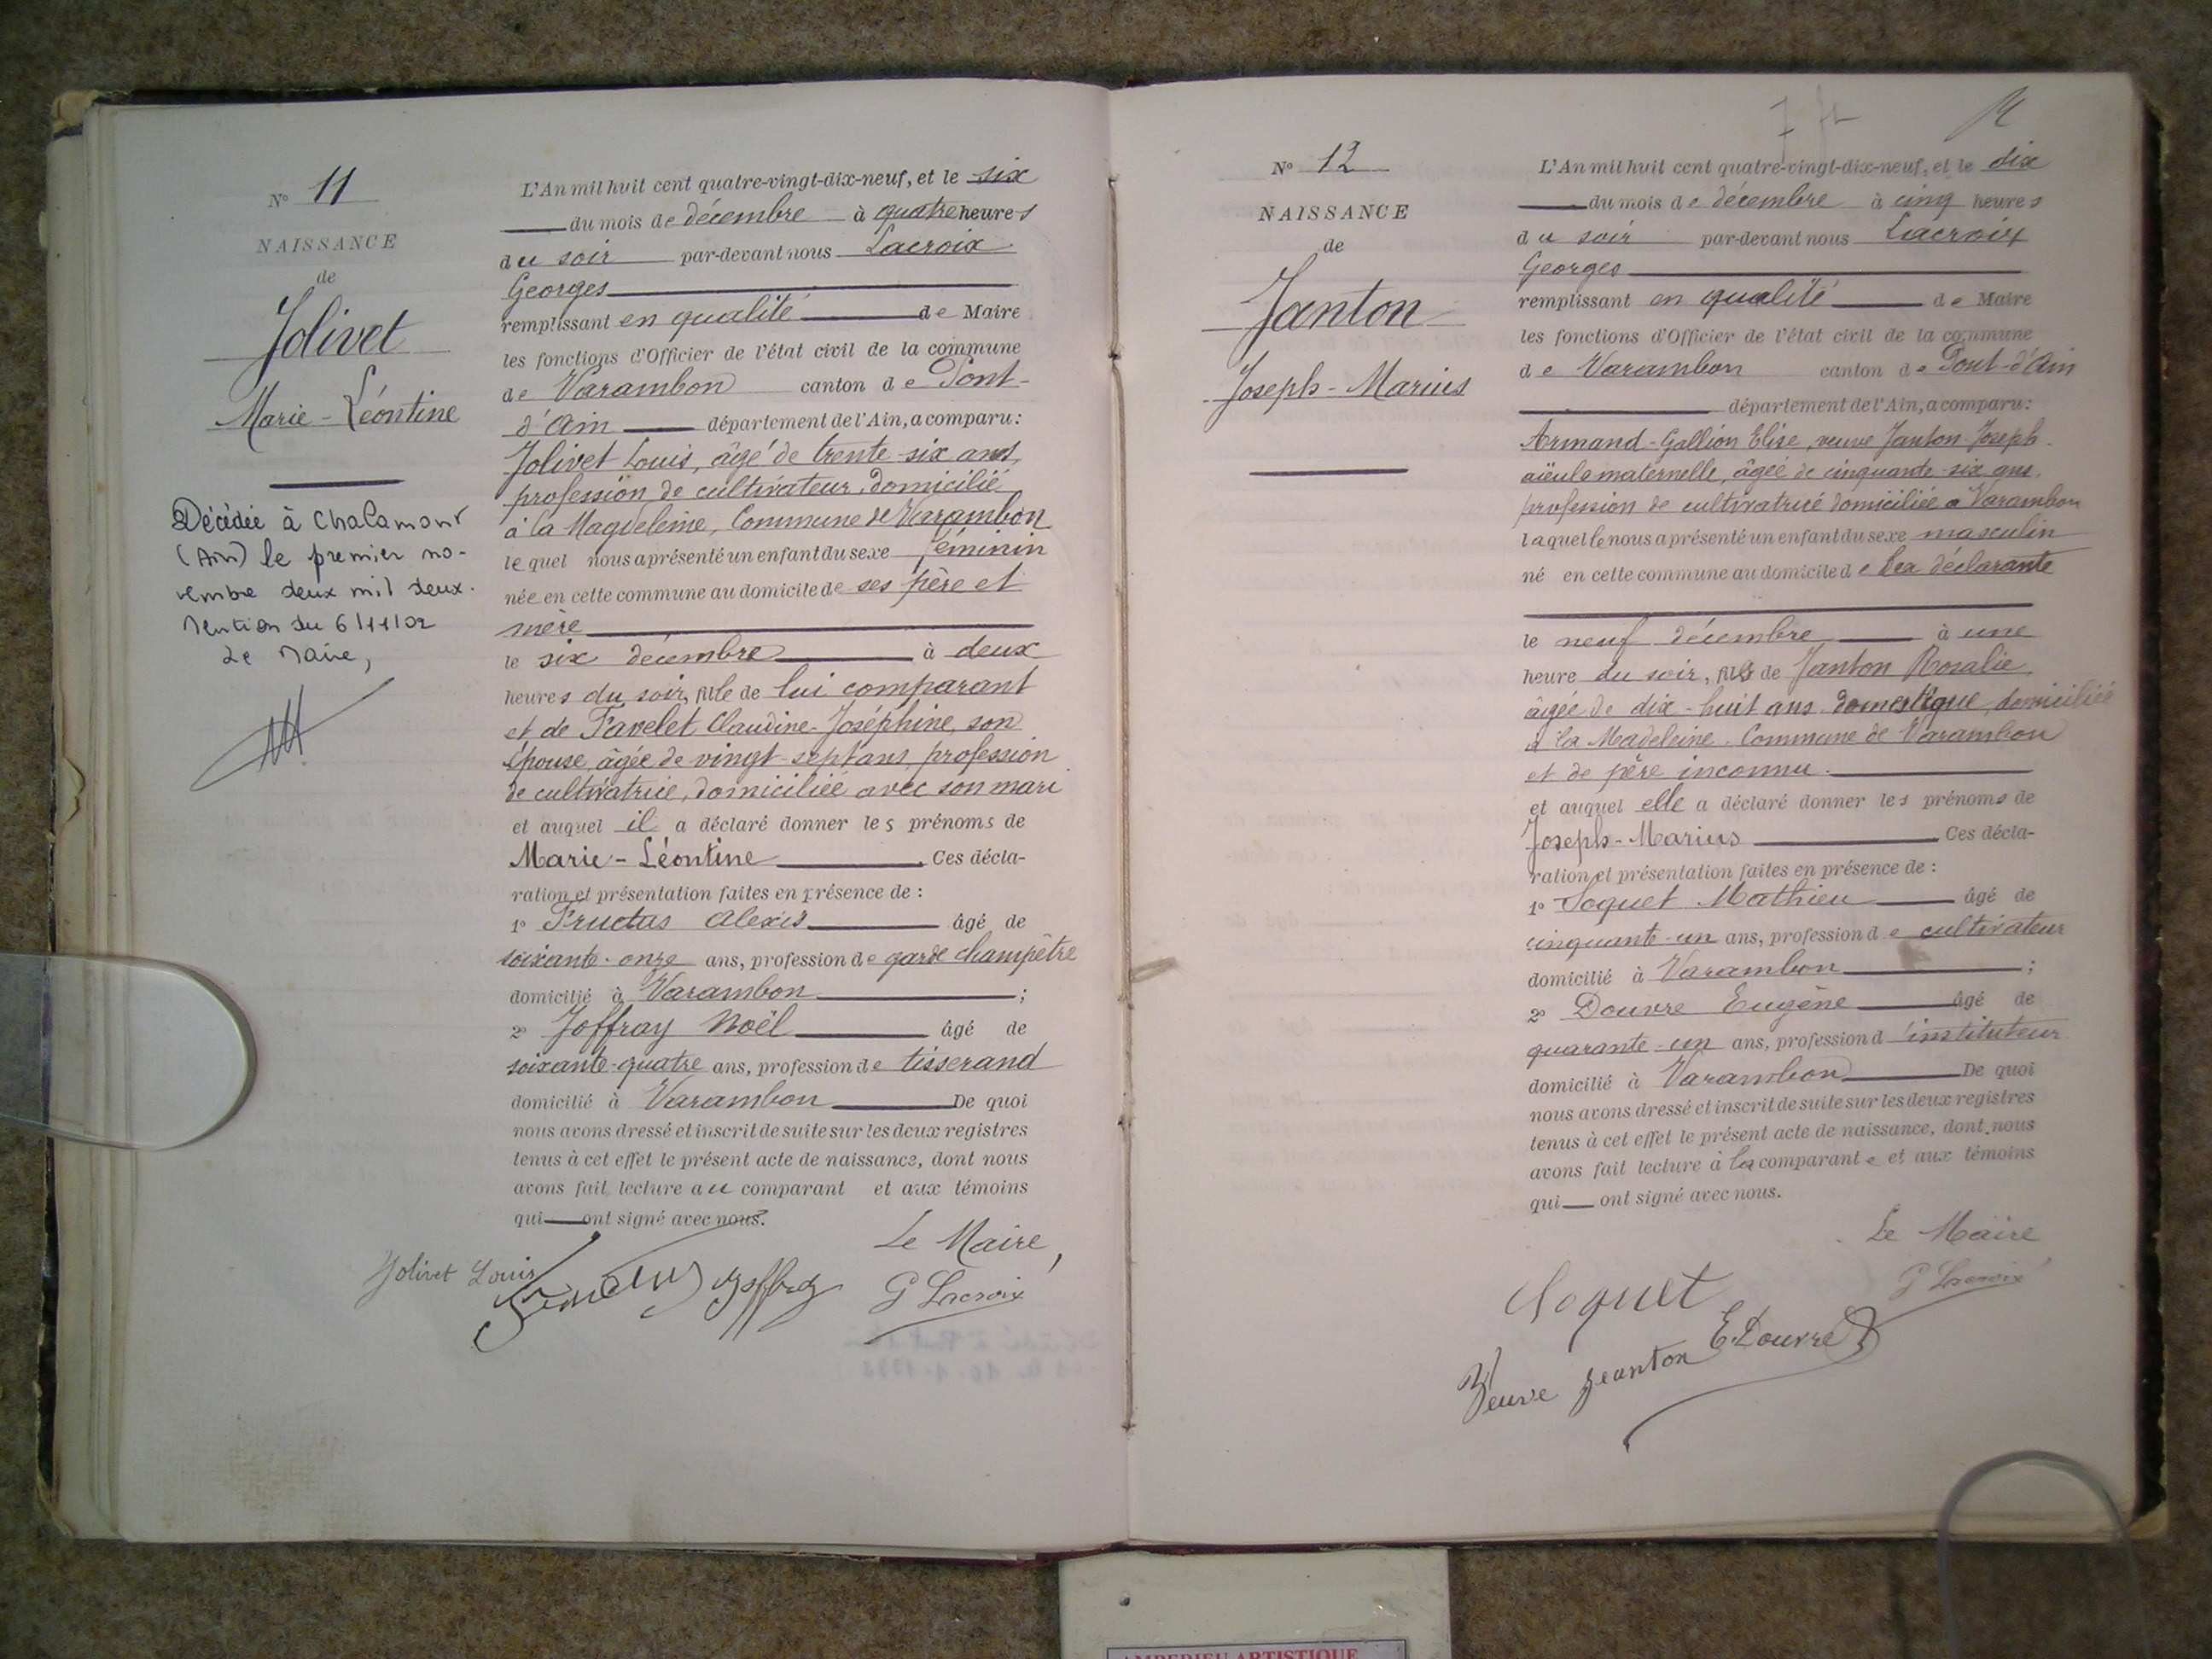 N° 11
NAISSANCE
de
Jolivet
Marie-Léontine
Décédée à Chalamont
(Ain) le premier no-
vembre deux mil deux.
Mention du 6/11/02
Le Maire,
L'An mil huit cent quatre-vingt-dix-neuf, et le six
du mois de décembre à quatre heures
du soir par-devant nous Lacroix
Georges
remplissant en qualité de Maire
les fonctions d'Officier de l'état civil de la commune
de Varambon canton de Pont-
d'Ain département de l'Ain, a comparu:
Jolivet Louis, âgé de trente-six ans,
profession de cultivateur, domicilié
à la Magdeleine, Commune de Varambon
lequel nous a présenté un enfant du sexe féminin
née en cette commune au domicile de ses père et
mère
le six décembre à deux
heures du soir, fille de lui comparant
et de Favelet Claudine-Joséphine, son
épouse, âgée de vingt-sept ans, profession
de cultivatrice, domiciliée avec son mari
et auquel il a déclaré donner les prénoms de
Marie-Léontine. Ces décla-
ration et présentation faites en présence de :
1° Fructus Alexis âgé de
soixante-onze ans, profession de garde champêtre
domicilié à Varambon ;
2° Joffray Noël âgé de
soixante-quatre ans, profession de tisserand
domicilié à Varambon De quoi
nous avons dressé et inscrit de suite sur les deux registres
tenus à cet effet le présent acte de naissance, dont nous
avons fait lecture au comparant et aux témoins
qui ont signé avec nous.
Le Maire,
Jolivet Louis
G Lacroix
N° 12
NAISSANCE
de
Janton
Joseph-Marius
L'An mil huit cent quatre-vingt-dix-neuf, et le dix
du mois de décembre à cinq heures
du soir par-devant nous Lacroix
Georges
remplissant en qualité de Maire
les fonctions d'Officier de l'état civil de la commune
de Varambon canton de Pont-d'Ain
département de l'Ain, a comparu:
Armand-Gallion Elise, veuve Janton Joseph.
aïeule maternelle, âgée de cinquante-six ans.
profession de cultivatrice domiciliée à Varambon
laquelle nous a présenté un enfant du sexe masculin
né en cette commune au domicile de la déclarante
le neuf décembre à une
heure du soir, fils de Janton Rosalie,
âgée de dix-huit ans domestique, domiciliée
à la Madeleine. Commune de Varambon
et de père inconnu.
et auquel elle a déclaré donner les prénoms de
Joseph-Marius Ces décla-
ration et présentation faites en présence de :
1° Loquet Mathieu âgé de
cinquante-un ans, profession de cultivateur
domicilié à Varambon ;
2° Douvre Eugène âgé de
quarante-un ans, profession d'instituteur
domicilié à Varambon De quoi
nous avons dressé et inscrit de suite sur les deux registres
tenus à cet effet le présent acte de naissance, dont nous
avons fait lecture à la comparante et aux témoins
qui ont signé avec nous.
Le Maire
G Lacroix
E. Douvre
Veuve Jeanton
AMBERIEU ARTISTIQUE